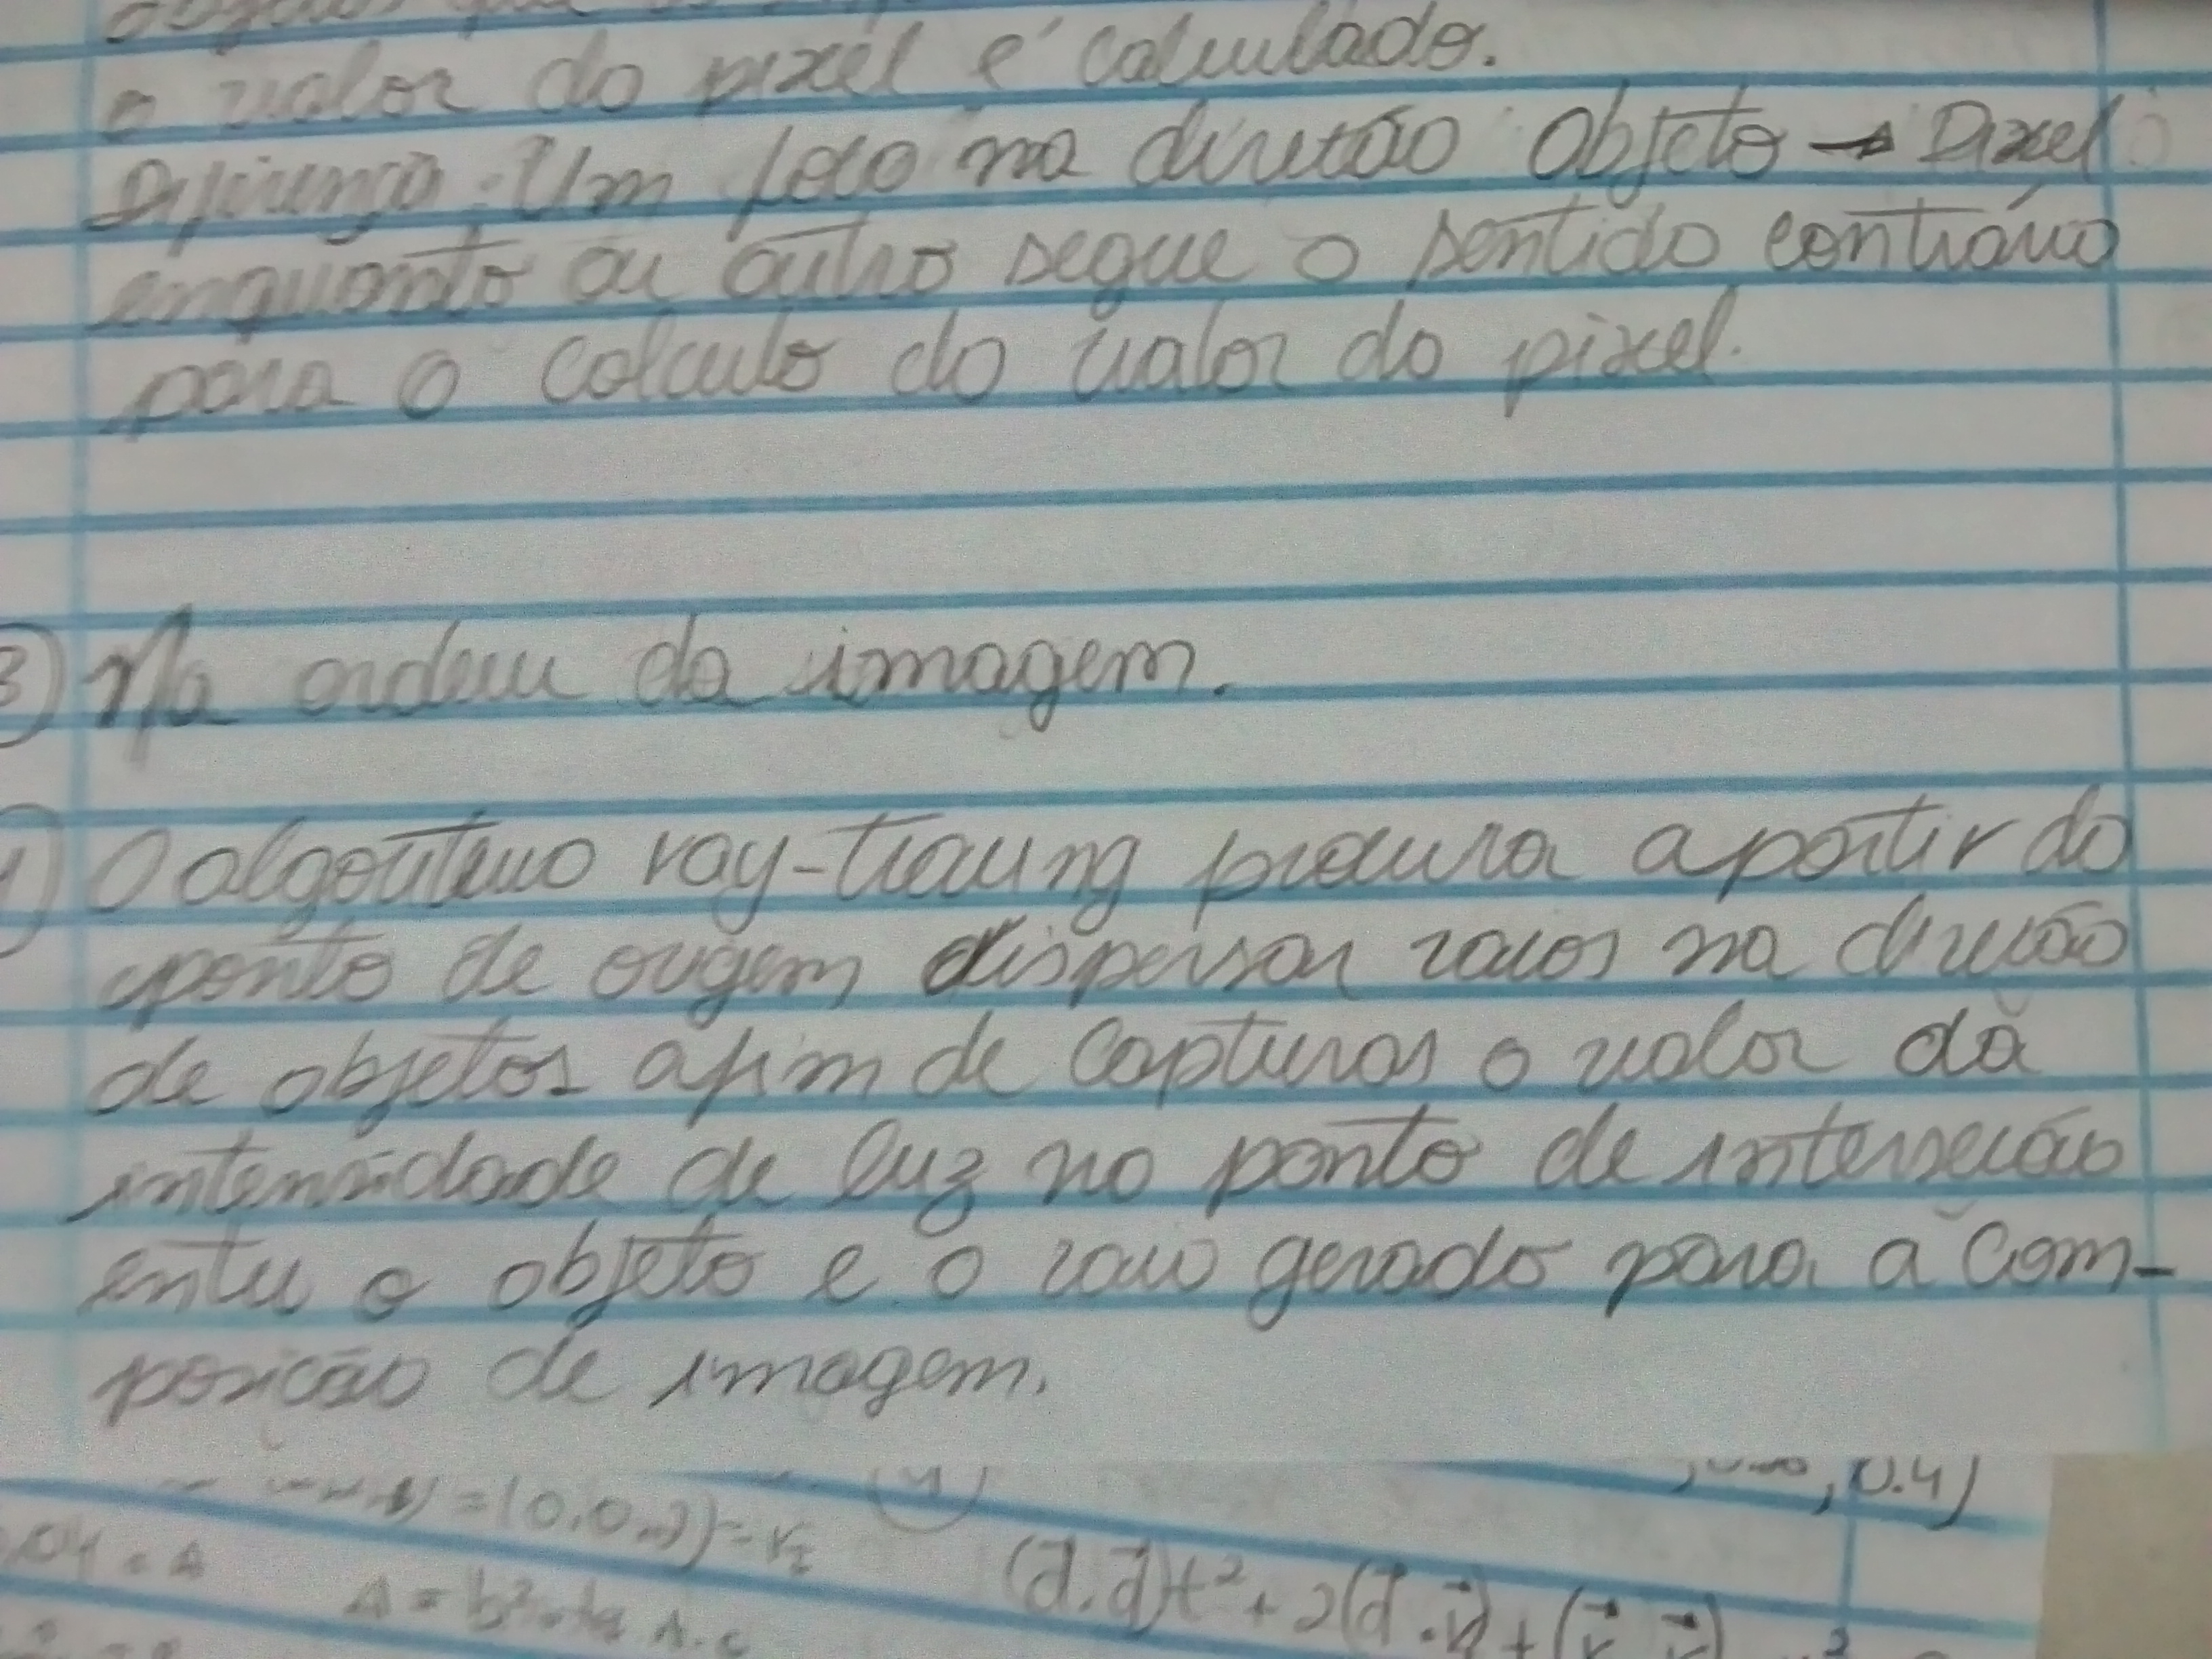 o valor do pixel é calculado.
Diferença: Um foco na direção Objeto → Pixel
enquanto ou outro segue o sentido contrário
para o calculo do valor do pixel.
3) Na ordem da imagem.
O algoritmo ray-tracing procura a partir do
ponto de origem dispersar raios na direção
de objetos afim de capturar o valor da
intensidade de luz no ponto de interseção
entre o objeto e o raio gerado para a com-
posição de imagem.
= (0,0,
, 0.4)
(d⃗.d⃗)t² + 2(d⃗.